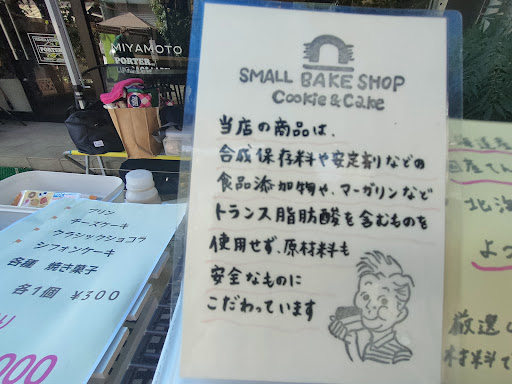 MIYAMOTO
PORTER
SMALL BAKE SHOP
Cookie & Cake
当店の商品は、
合成保存料や安定剤などの
食品添加物や、マーガリンなど
トランス脂肪酸を含むものを
使用せず、原材料も
安全なものに
こだわっています
プリン
チーズケーキ
クラシックショコラ
シフォンケーキ
各種 焼き菓子
各1個 ¥300
り
000
北海
よつ
厳選
材料で